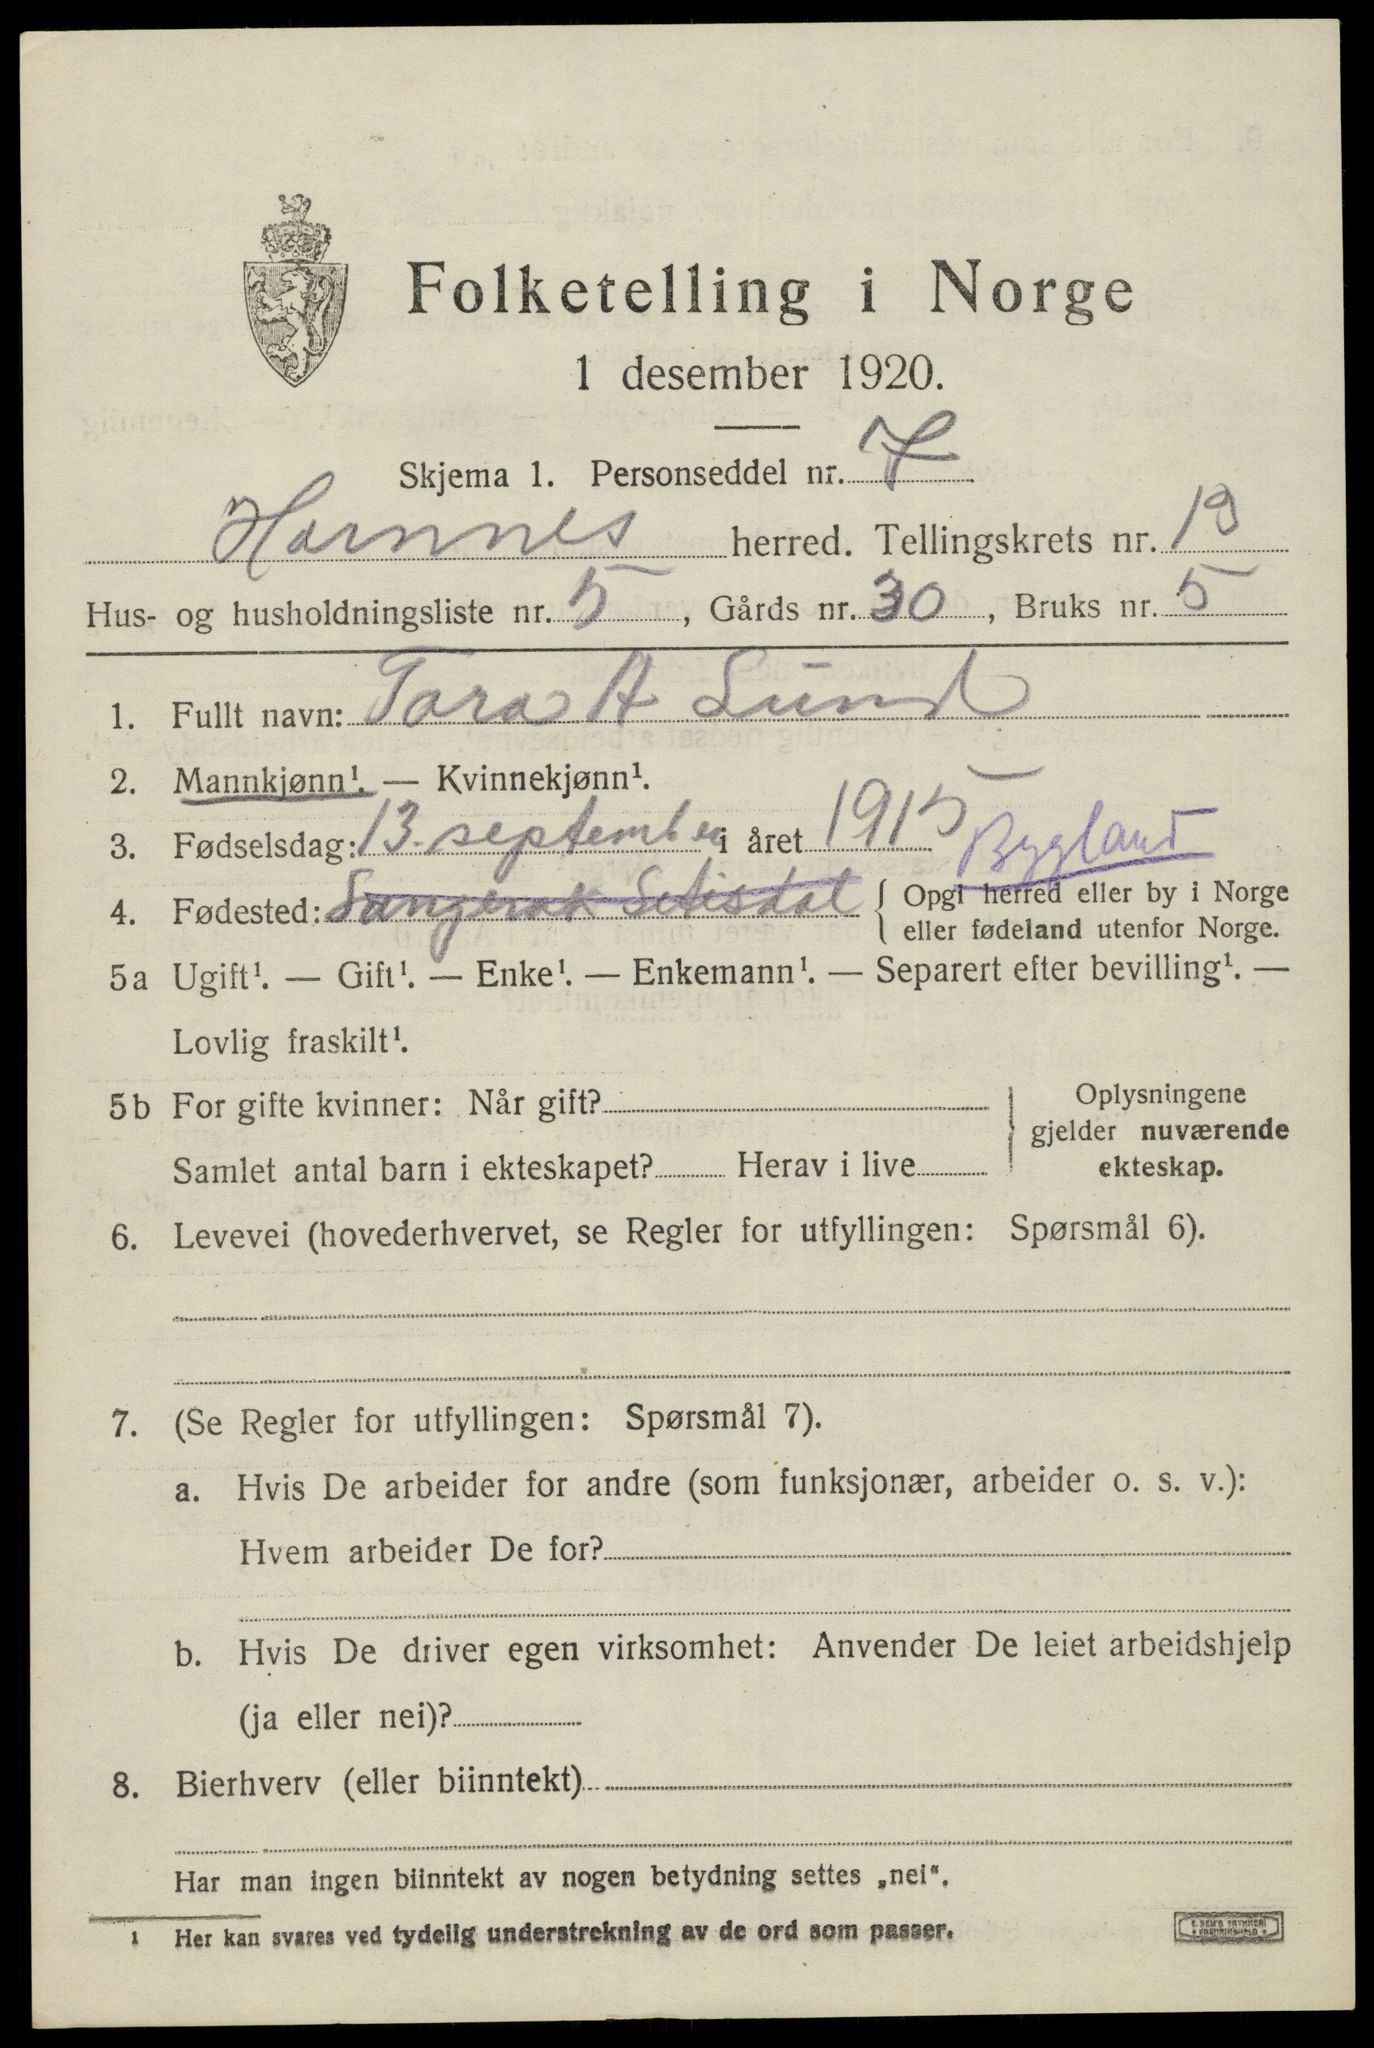 Folketelling i Norge
1 desember 1920.
Skjema 1. Personseddel nr. 7
Hornnes herred. Tellingskrets nr. 13
Hus- og husholdningsliste nr. 5, Gårds nr. 30, Bruks nr. 5
1. Fullt navn: Tara A Lund
2. Mannkjønn¹. — Kvinnekjønn¹.
3. Fødselsdag: 13. september i året 1915
Bygland
4. Fødested: Langerak Setisdal { Opgi herred eller by i Norge
eller fødeland utenfor Norge.
5a Ugift¹. — Gift¹. — Enke¹. — Enkemann¹. — Separert efter bevilling¹. —
Lovlig fraskilt¹.
5b For gifte kvinner: Når gift?
Samlet antal barn i ekteskapet? Herav i live
Oplysningene
gjelder nuværende
ekteskap.
6. Levevei (hovederhvervet, se Regler for utfyllingen: Spørsmål 6).
7. (Se Regler for utfyllingen: Spørsmål 7).
a. Hvis De arbeider for andre (som funksjonær, arbeider o. s. v.):
Hvem arbeider De for?
b. Hvis De driver egen virksomhet: Anvender De leiet arbeidshjelp
(ja eller nei)?
8. Bierhverv (eller biinntekt)
Har man ingen biinntekt av nogen betydning settes „nei“.
¹ Her kan svares ved tydelig understrekning av de ord som passer.
E. SEM'S TRYKKERI
FREDRIKSHALD